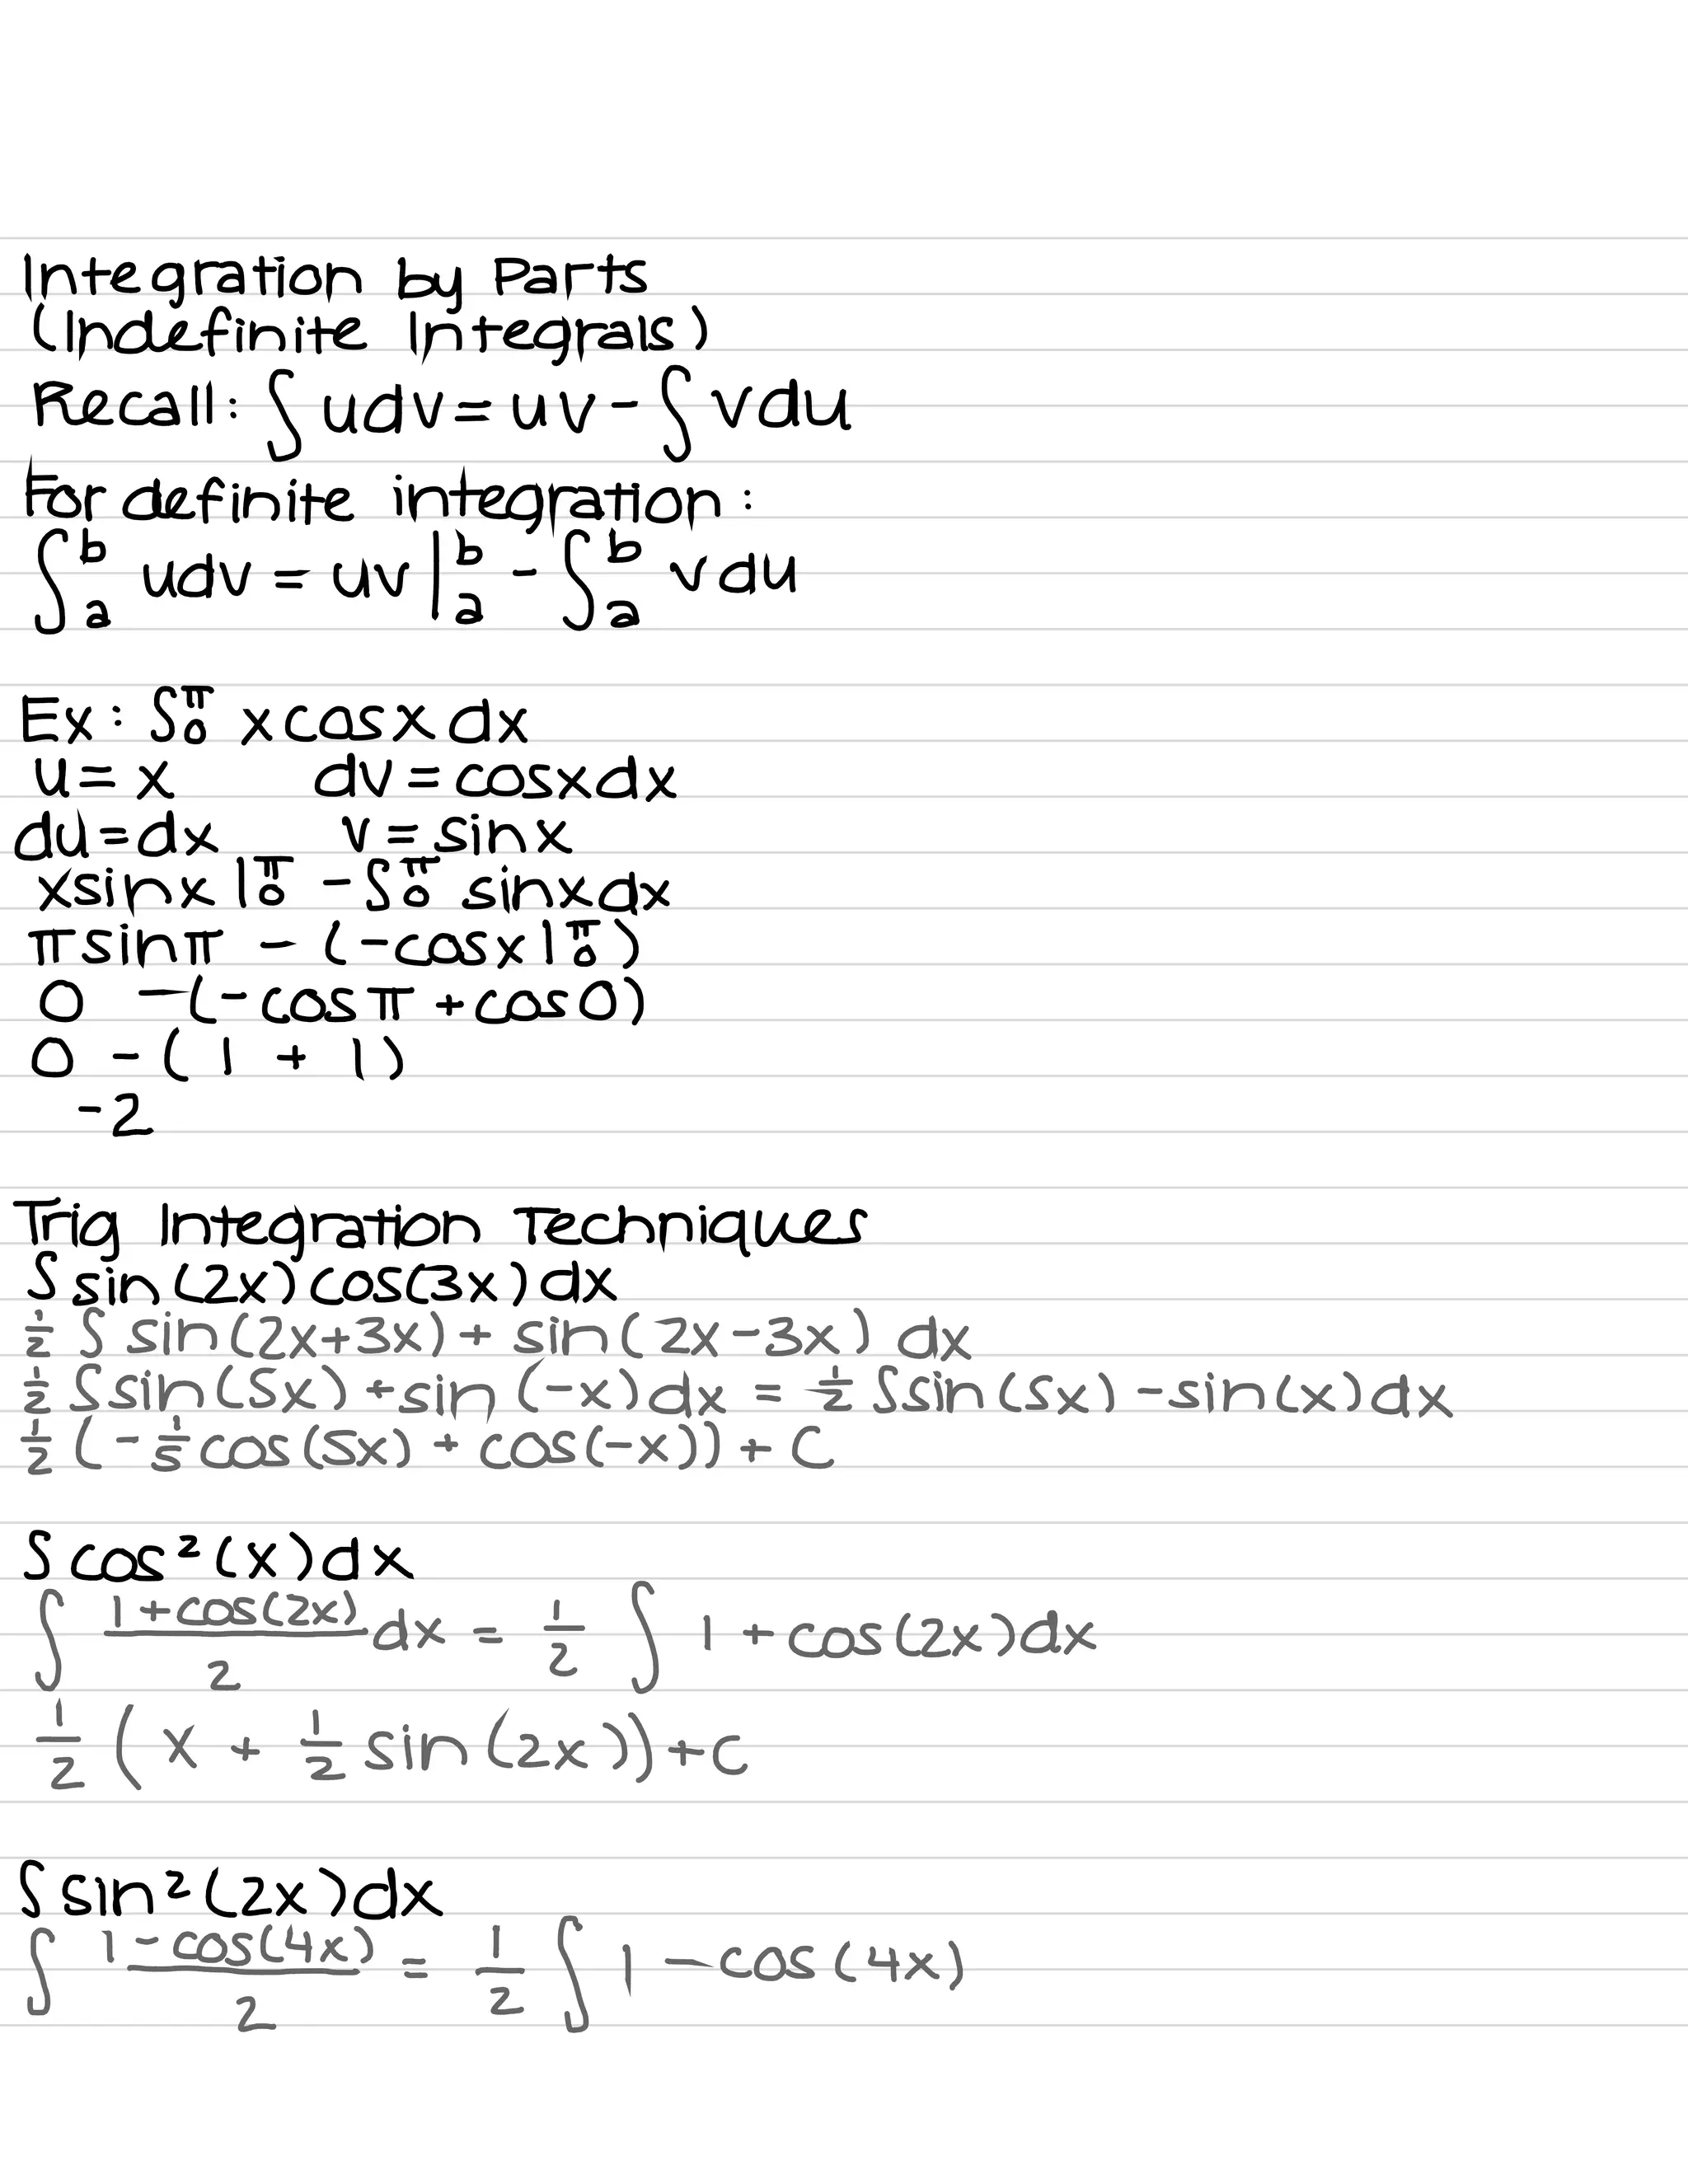 Integration by Parts
(Indefinite Integrals)
Recall: ∫ udv = uv - ∫ vdu
For definite integration:
∫_a^b udv = uv |_a^b - ∫_a^b vdu
Ex: ∫_0^π xcosx dx
u = x dv = cosxdx
du = dx v = sinx
xsinx |_0^π - ∫_0^π sinxdx
πsinπ - (-cosx |_0^π)
0 - (-cosπ + cos0)
0 - (1 + 1)
-2
Trig Integration Techniques
∫ sin(2x)cos(3x)dx
½ ∫ sin(2x+3x) + sin(2x-3x) dx
½ ∫sin(5x) + sin(-x)dx = ½ ∫sin(5x) - sin(x)dx
½ (-⅕cos(5x) + cos(-x)) + C
∫cos²(x)dx
∫ (1+cos(2x))/2 dx = 1/2 ∫ 1 + cos(2x)dx
1/2 (x + 1/2 sin(2x)) + C
∫sin²(2x)dx
∫ (1-cos(4x))/2 = 1/2 ∫ 1 - cos(4x)